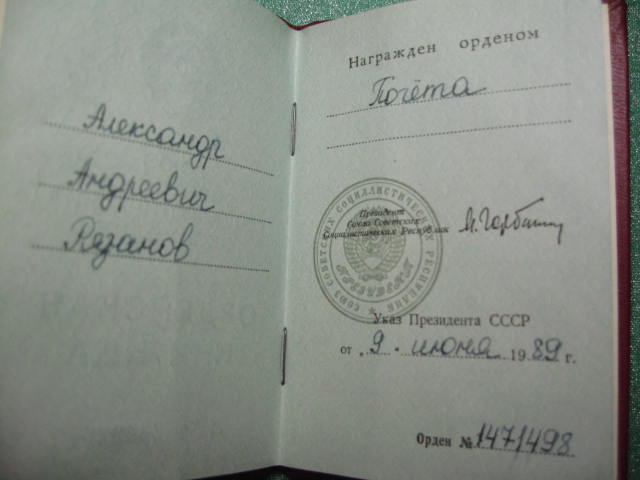 Александр
Андреевич
Рязанов
Награжден орденом
Почёта
Президент
Союза Советских
Социалистических Республик
М. Горбачев
СОЮЗ СОВЕТСКИХ СОЦИАЛИСТИЧЕСКИХ РЕСПУБЛИК
ПРЕЗИДЕНТ
Указ Президента СССР
от 9 июня 1989 г.
Орден № 1471498